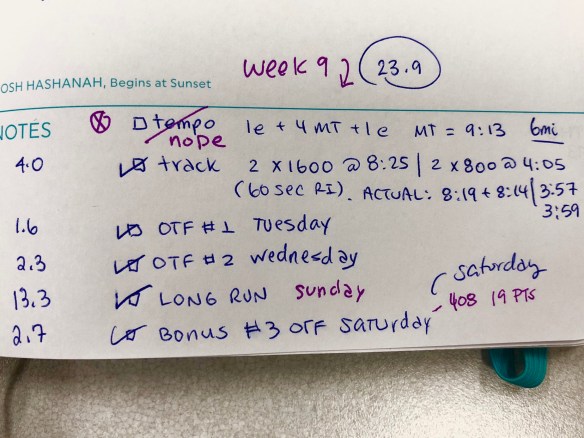 week 9 23.9
OSH HASHANAH, Begins at Sunset
NOTES
tempo 1e + 4 MT + 1e MT = 9:13 6mi
nope
4.0 track 2 x 1600 @ 8:25 | 2 x 800 @ 4:05
(60 sec RI). ACTUAL: 8:19 + 8:14 | 3:57
3:59
1.6 OTF #1 Tuesday
2.3 OTF #2 wednesday
saturday
13.3 LONG RUN sunday 408 19 PTS
2.7 BONUS #3 OTF saturday